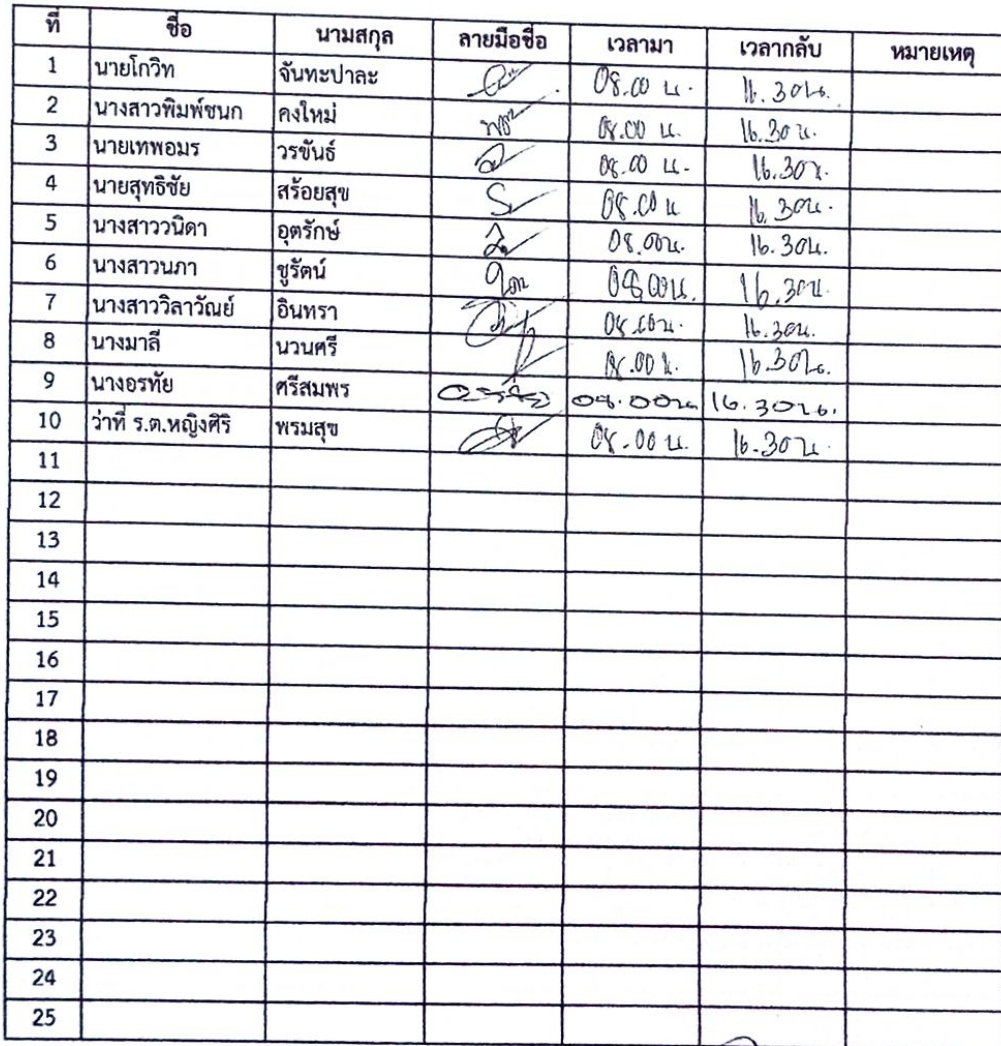 ที่ ชื่อ นามสกุล ลายมือชื่อ เวลามา เวลากลับ หมายเหตุ
1 นายโกวิท จันทะปาละ 08.00 น. 16.30 น.
2 นางสาวพิมพ์ชนก คงใหม่ 08.00 น. 16.30 น.
3 นายเทพอมร วรขันธ์ 08.00 น. 16.30 น.
4 นายสุทธิชัย สร้อยสุข 08.00 น 16.30น.
5 นางสาววนิดา อุตรักษ์ 08.00น. 16.30น.
6 นางสาวนภา ชูรัตน์ 08.00น. 16.30น.
7 นางสาววิลาวัณย์ อินทรา 08.00น. 16.30น.
8 นางมาลี นวนศรี 08.00 น. 16.30น.
9 นางอรทัย ศรีสมพร 08.00น 16.30น.
10 ว่าที่ ร.ต.หญิงศิริ พรมสุข 08.00 น. 16.30น.
11
12
13
14
15
16
17
18
19
20
21
22
23
24
25